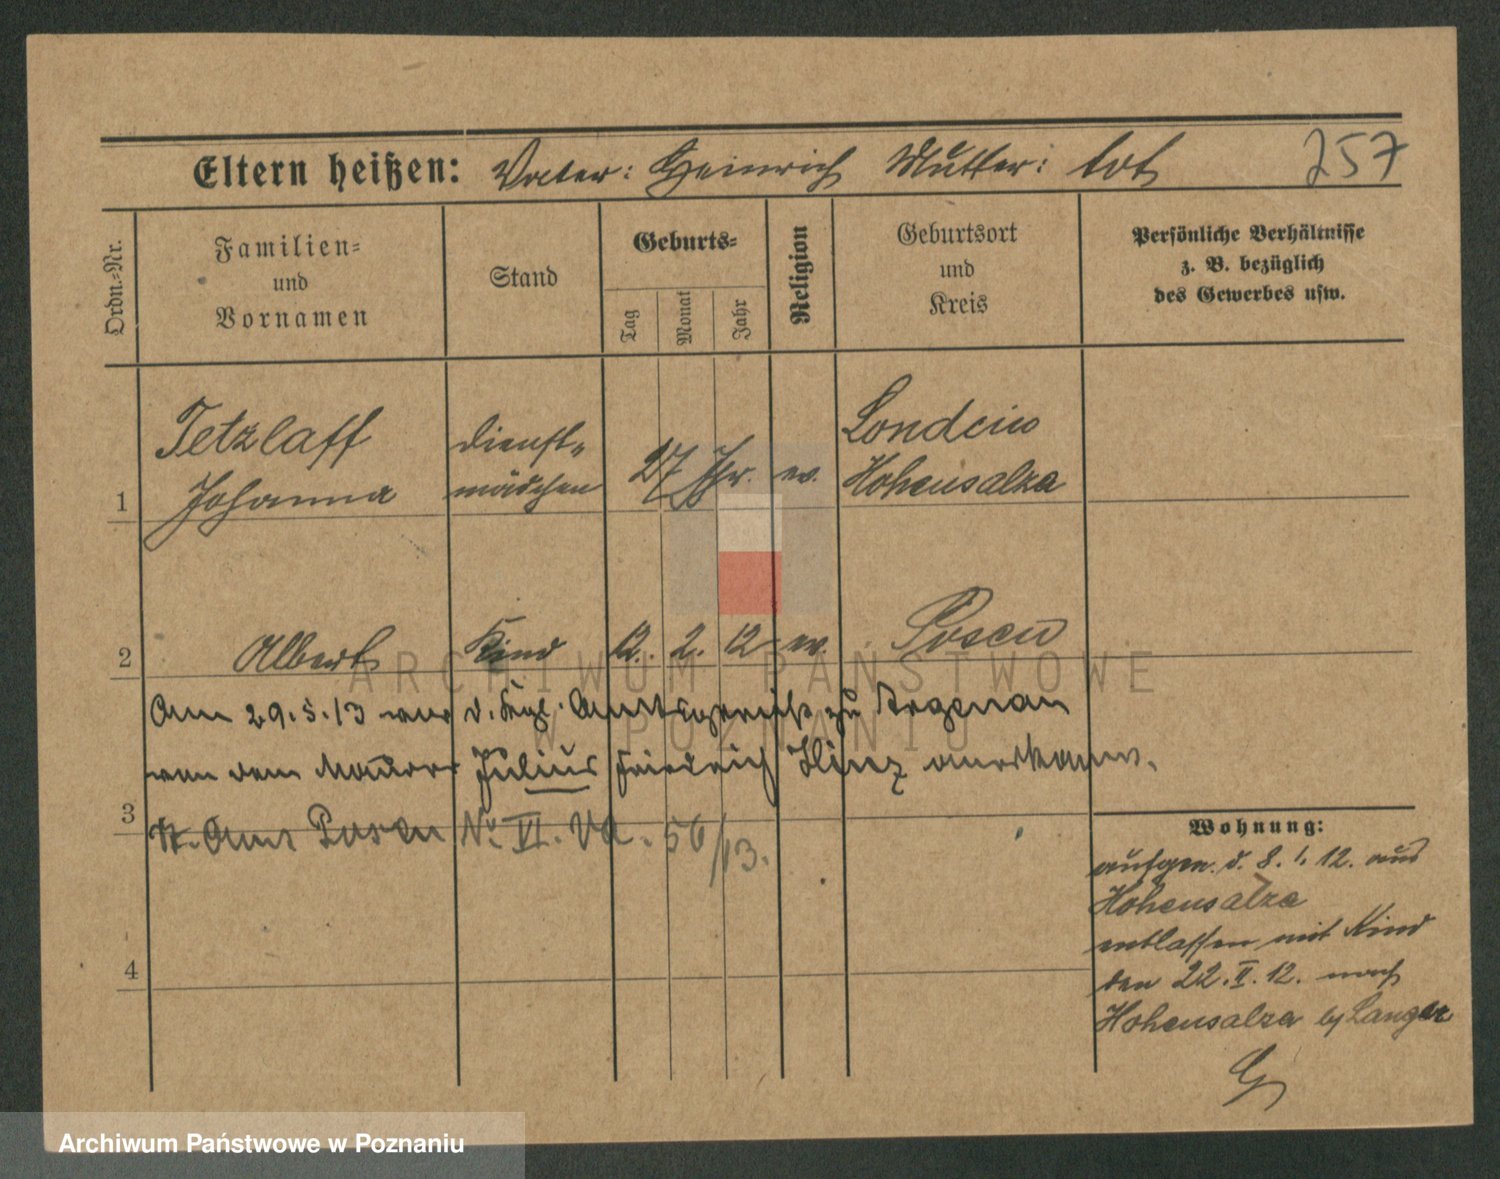 Eltern heißen: Vater: Heinrich Mutter: tot 257
Ordn.-Nr.
Familien-
und
Vornamen
Stand
Geburts-
Tag
Monat
Jahr
Religion
Geburtsort
und
Kreis
Persönliche Verhältnisse
z. B. bezüglich
des Gewerbes usw.
Tetzlaff dienst- Londcin
1 Johanna mädchen 27 Jhr. ev. Hohensalza
2 Albert Kind 12. 2. 12 ev. Posen
Am 29.5.13 vor d. Kgl. Amtsgericht zu Argenau
von dem Maurer Julius Friedrich Hinz anerkannt.
3 St. Amt Posen No VI. Va. 56/13.
4
Wohnung:
aufgen. d. 8. 1. 12. aus
Hohensalza
entlassen mit Kind
den 22. II. 12. nach
Hohensalza bj Langer
G
ARCHIWUM PAŃSTWOWE
W POZNANIU
Archiwum Państwowe w Poznaniu